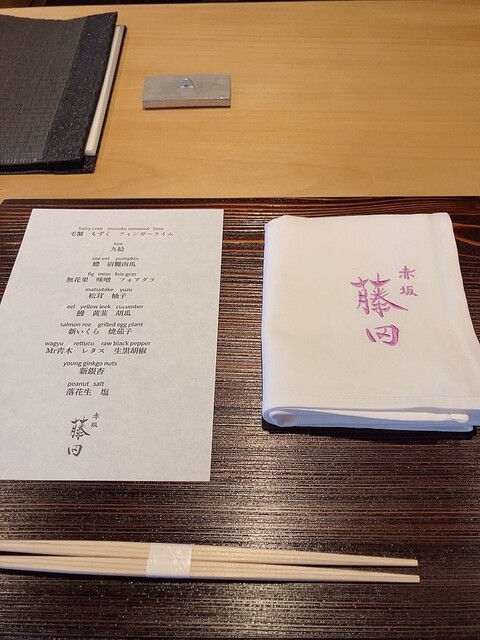 hairy crab mozuku seaweed lime
毛蟹 もずく フィンガーライム
kue
九絵
sea eel pumpkin
鱧 宿儺南瓜
fig miso foie gras
無花果 味噌 フォアグラ
matsutake yuzu
松茸 柚子
eel yellow leek cucumber
鰻 黄韮 胡瓜
salmon roe grilled egg plant
新いくら 焼茄子
wagyu rettucu raw black pepper
Mr青木 レタス 生黒胡椒
young ginkgo nuts
新銀杏
peanut salt
落花生 塩
赤坂
藤田
赤坂
藤田